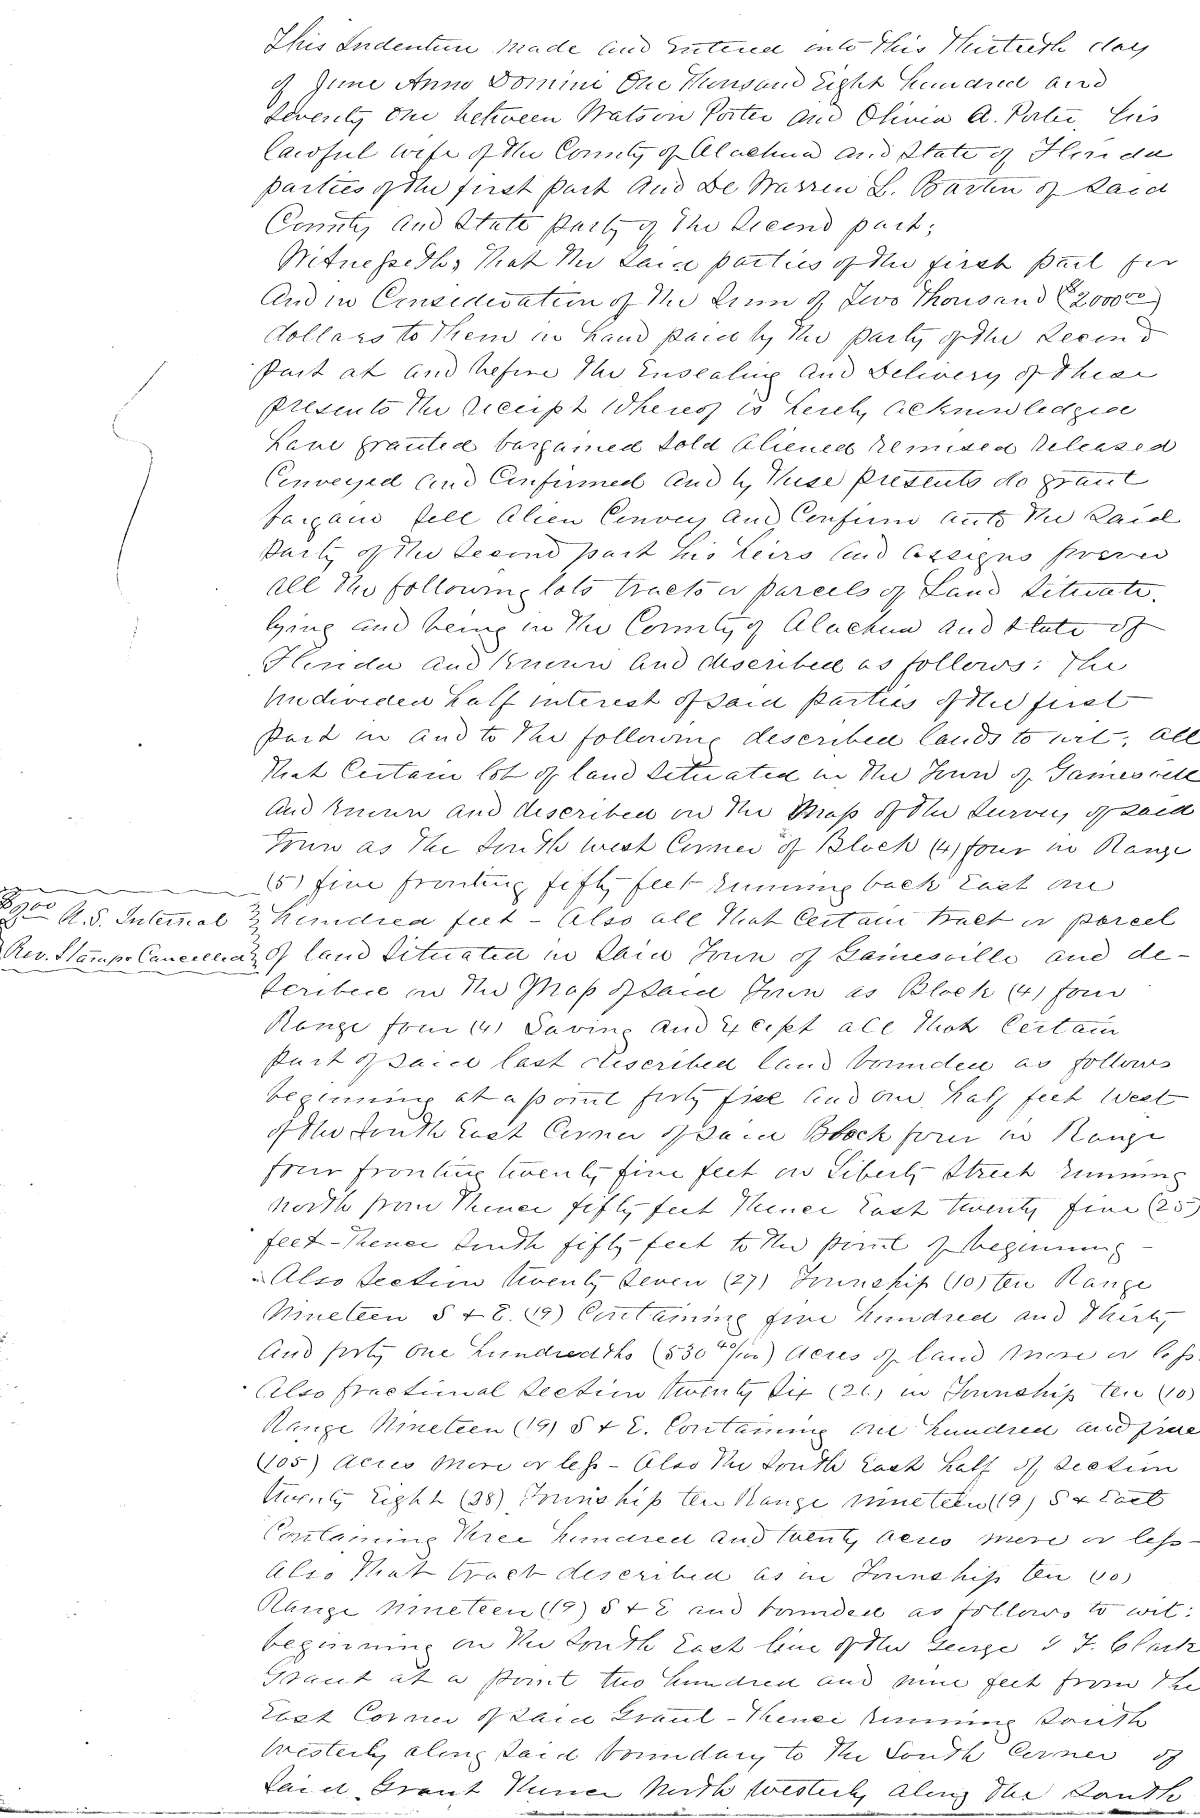 This Indenture made and entered into this Thirtieth day
of June Anno Domini One Thousand Eight hundred and
Seventy One between Watson Porter and Olivia A. Porter his
lawful wife of the County of Alachua and State of Florida
parties of the first part and De Warren L. Barton of said
County and State party of the Second part;
Witnesseth, That the said parties of the first part for
and in Consideration of the Sum of Two Thousand ($2000 00)
dollars to them in hand paid by the party of the Second
part at and before the Ensealing and Delivery of these
presents the receipt whereof is hereby acknowledged
have granted bargained sold aliened remised released
Conveyed and Confirmed and by these presents do grant
bargain sell alien Convey and Confirm unto the said
Party of the Second part his heirs and assigns forever
all the following lots tracts or parcels of Land Situate,
lying and being in the County of Alachua and State of
Florida and known and described as follows: The
undivided half interest of said parties of the first
part in and to the following described lands to wit; all
that Certain lot of land Situated in the Town of Gainesville
and known and described on the Map of the Survey of said
Town as the South west Corner of Block (4) four in Range
(5) five fronting fifty feet running back East one
$2 00 U.S. Internal hundred feet - Also all that Certain tract or parcel
Rev. Stamps Cancelled of land Situated in Said Town of Gainesville and de-
scribed on the Map of said Town as Block (4) four
Range four (4) Saving and Except all that Certain
part of said last described land bounded as follows
beginning at a point forty five and one half feet West
of the South East Corner of said Block four in Range
four fronting twenty five feet on Liberty Street running
north from thence fifty feet thence East twenty five (25)
feet - thence South fifty feet to the point of beginning -
Also Section twenty Seven (27) Township (10) ten Range
Nineteen S & E. (19) Containing five hundred and Thirty
and forty one hundredths (530 40/100) acres of land more or less.
Also fractional Section twenty Six (26) in Township ten (10)
Range Nineteen (19) S & E. Containing one hundred and five
(105) acres more or less - Also the South East half of Section
twenty Eight (28) Township ten Range nineteen (19) S & East
Containing three hundred and twenty acres more or less -
Also that tract described as in Township ten (10)
Range nineteen (19) S & E and bounded as follows to wit:
beginning on the South East line of the George I F. Clark
Grant at a point two hundred and nine feet from the
East Corner of said Grant - thence running South
Westerly along said boundary to the South Corner of
Said Grant thence North Westerly along the South